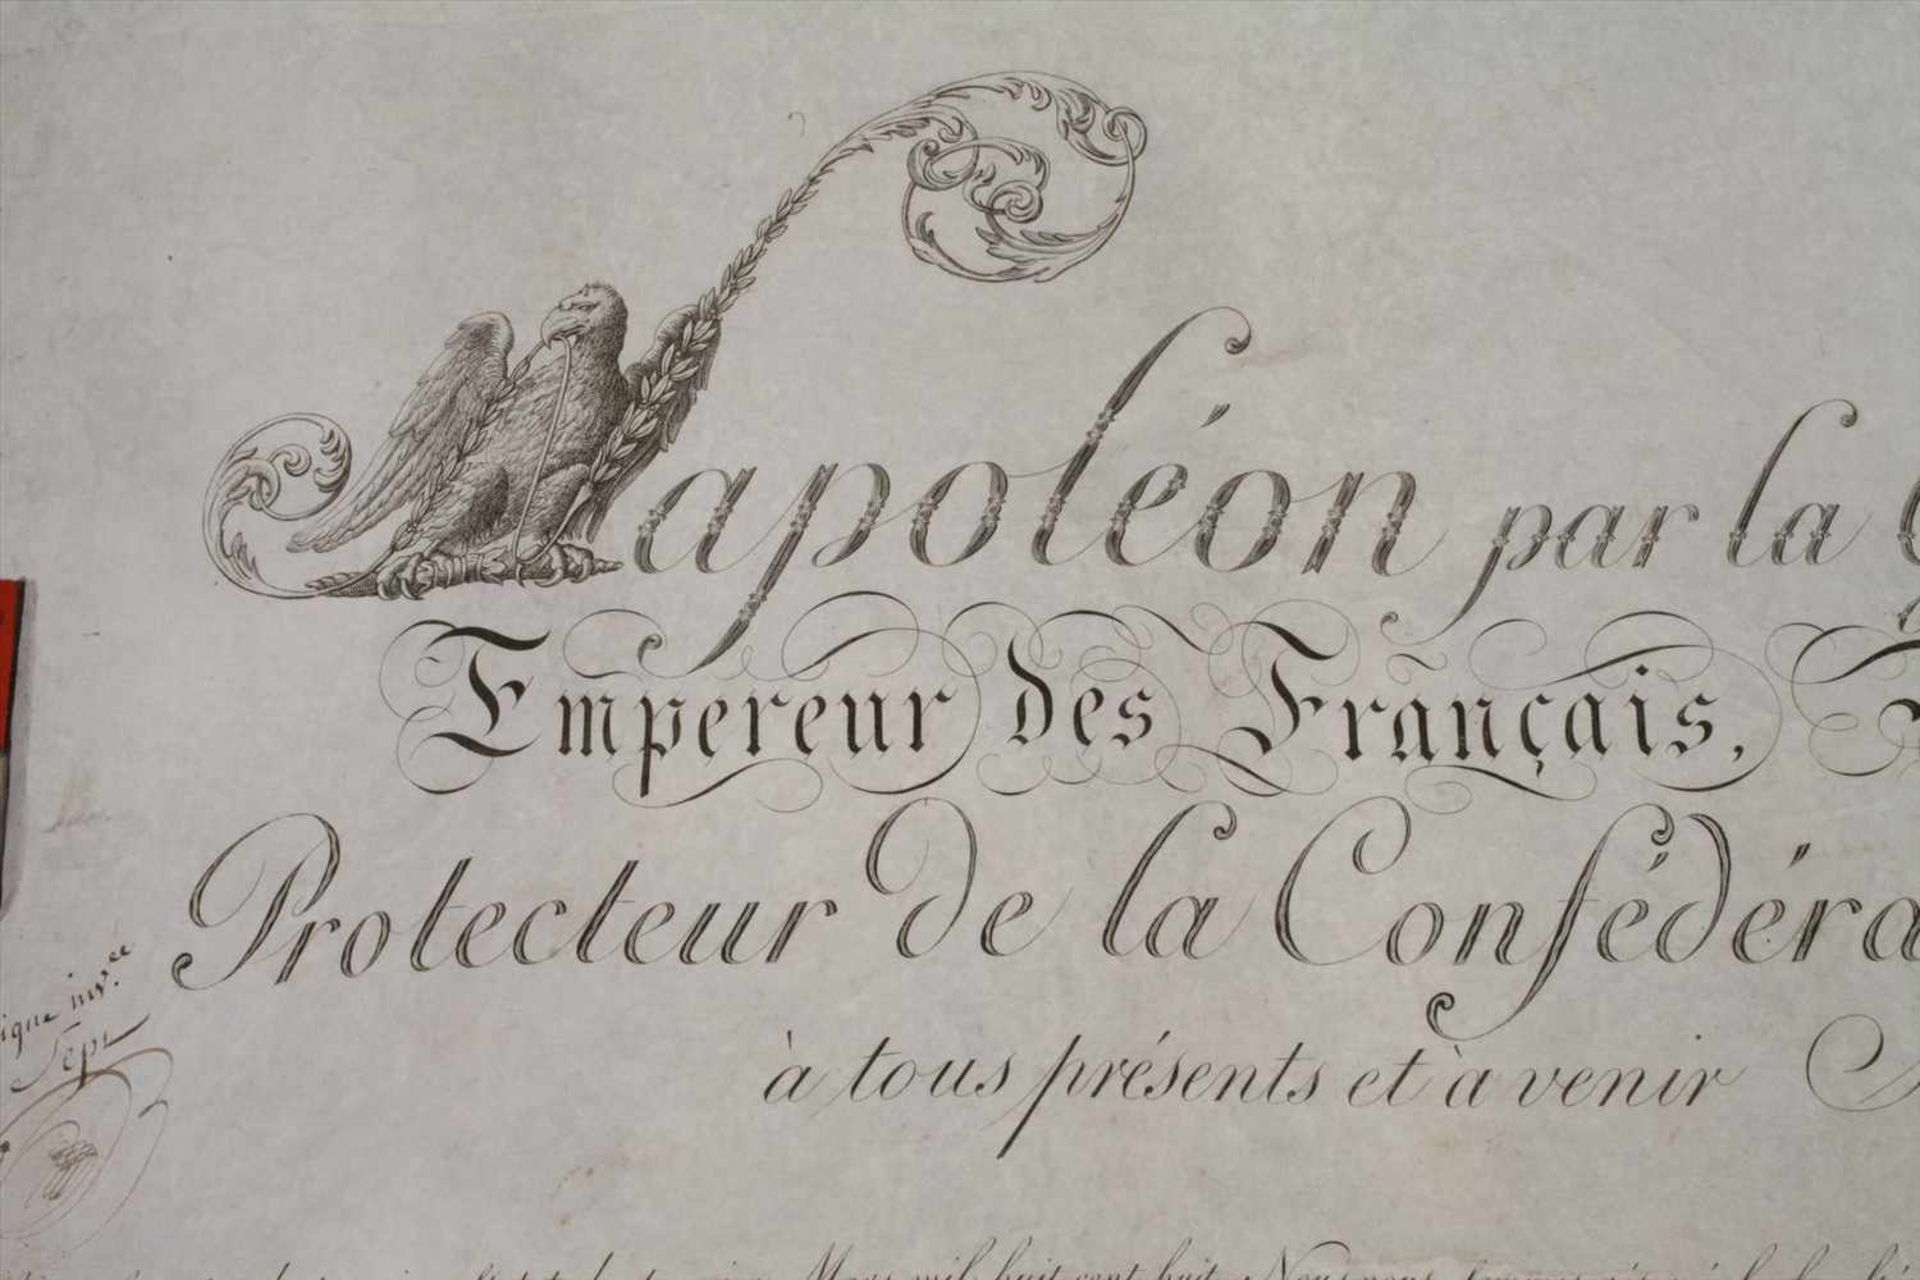 Napoléon par la
Empereur des Français,
Protecteur de la Confédéra
à tous présents et à venir
Mars mil huit cent huit, Nous